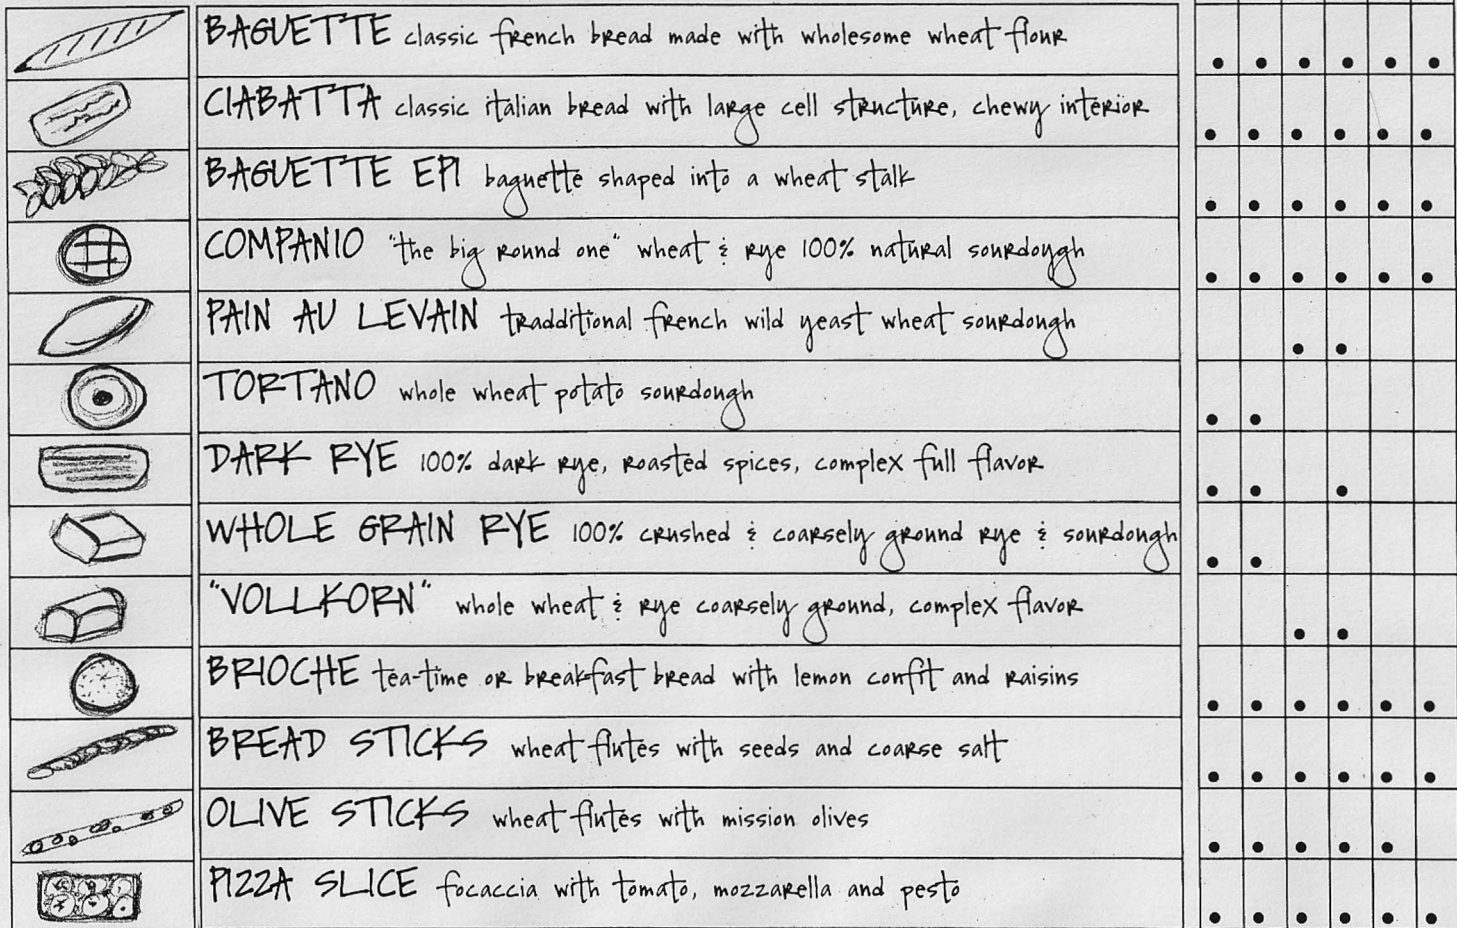 BAGUETTE classic french bread made with wholesome wheat flour
CIABATTA classic italian bread with large cell structure, chewy interior
BAGUETTE EPI baguette shaped into a wheat stalk
COMPANIO "the big round one" wheat & rye 100% natural sourdough
PAIN AU LEVAIN tradditional french wild yeast wheat sourdough
TORTANO whole wheat potato sourdough
DARK RYE 100% dark rye, roasted spices, complex full flavor
WHOLE GRAIN RYE 100% crushed & coarsely ground rye & sourdough
"VOLLKORN" whole wheat & rye coarsely ground, complex flavor
BRIOCHE tea-time or breakfast bread with lemon confit and raisins
BREAD STICKS wheat flutes with seeds and coarse salt
OLIVE STICKS wheat flutes with mission olives
PIZZA SLICE focaccia with tomato, mozzarella and pesto